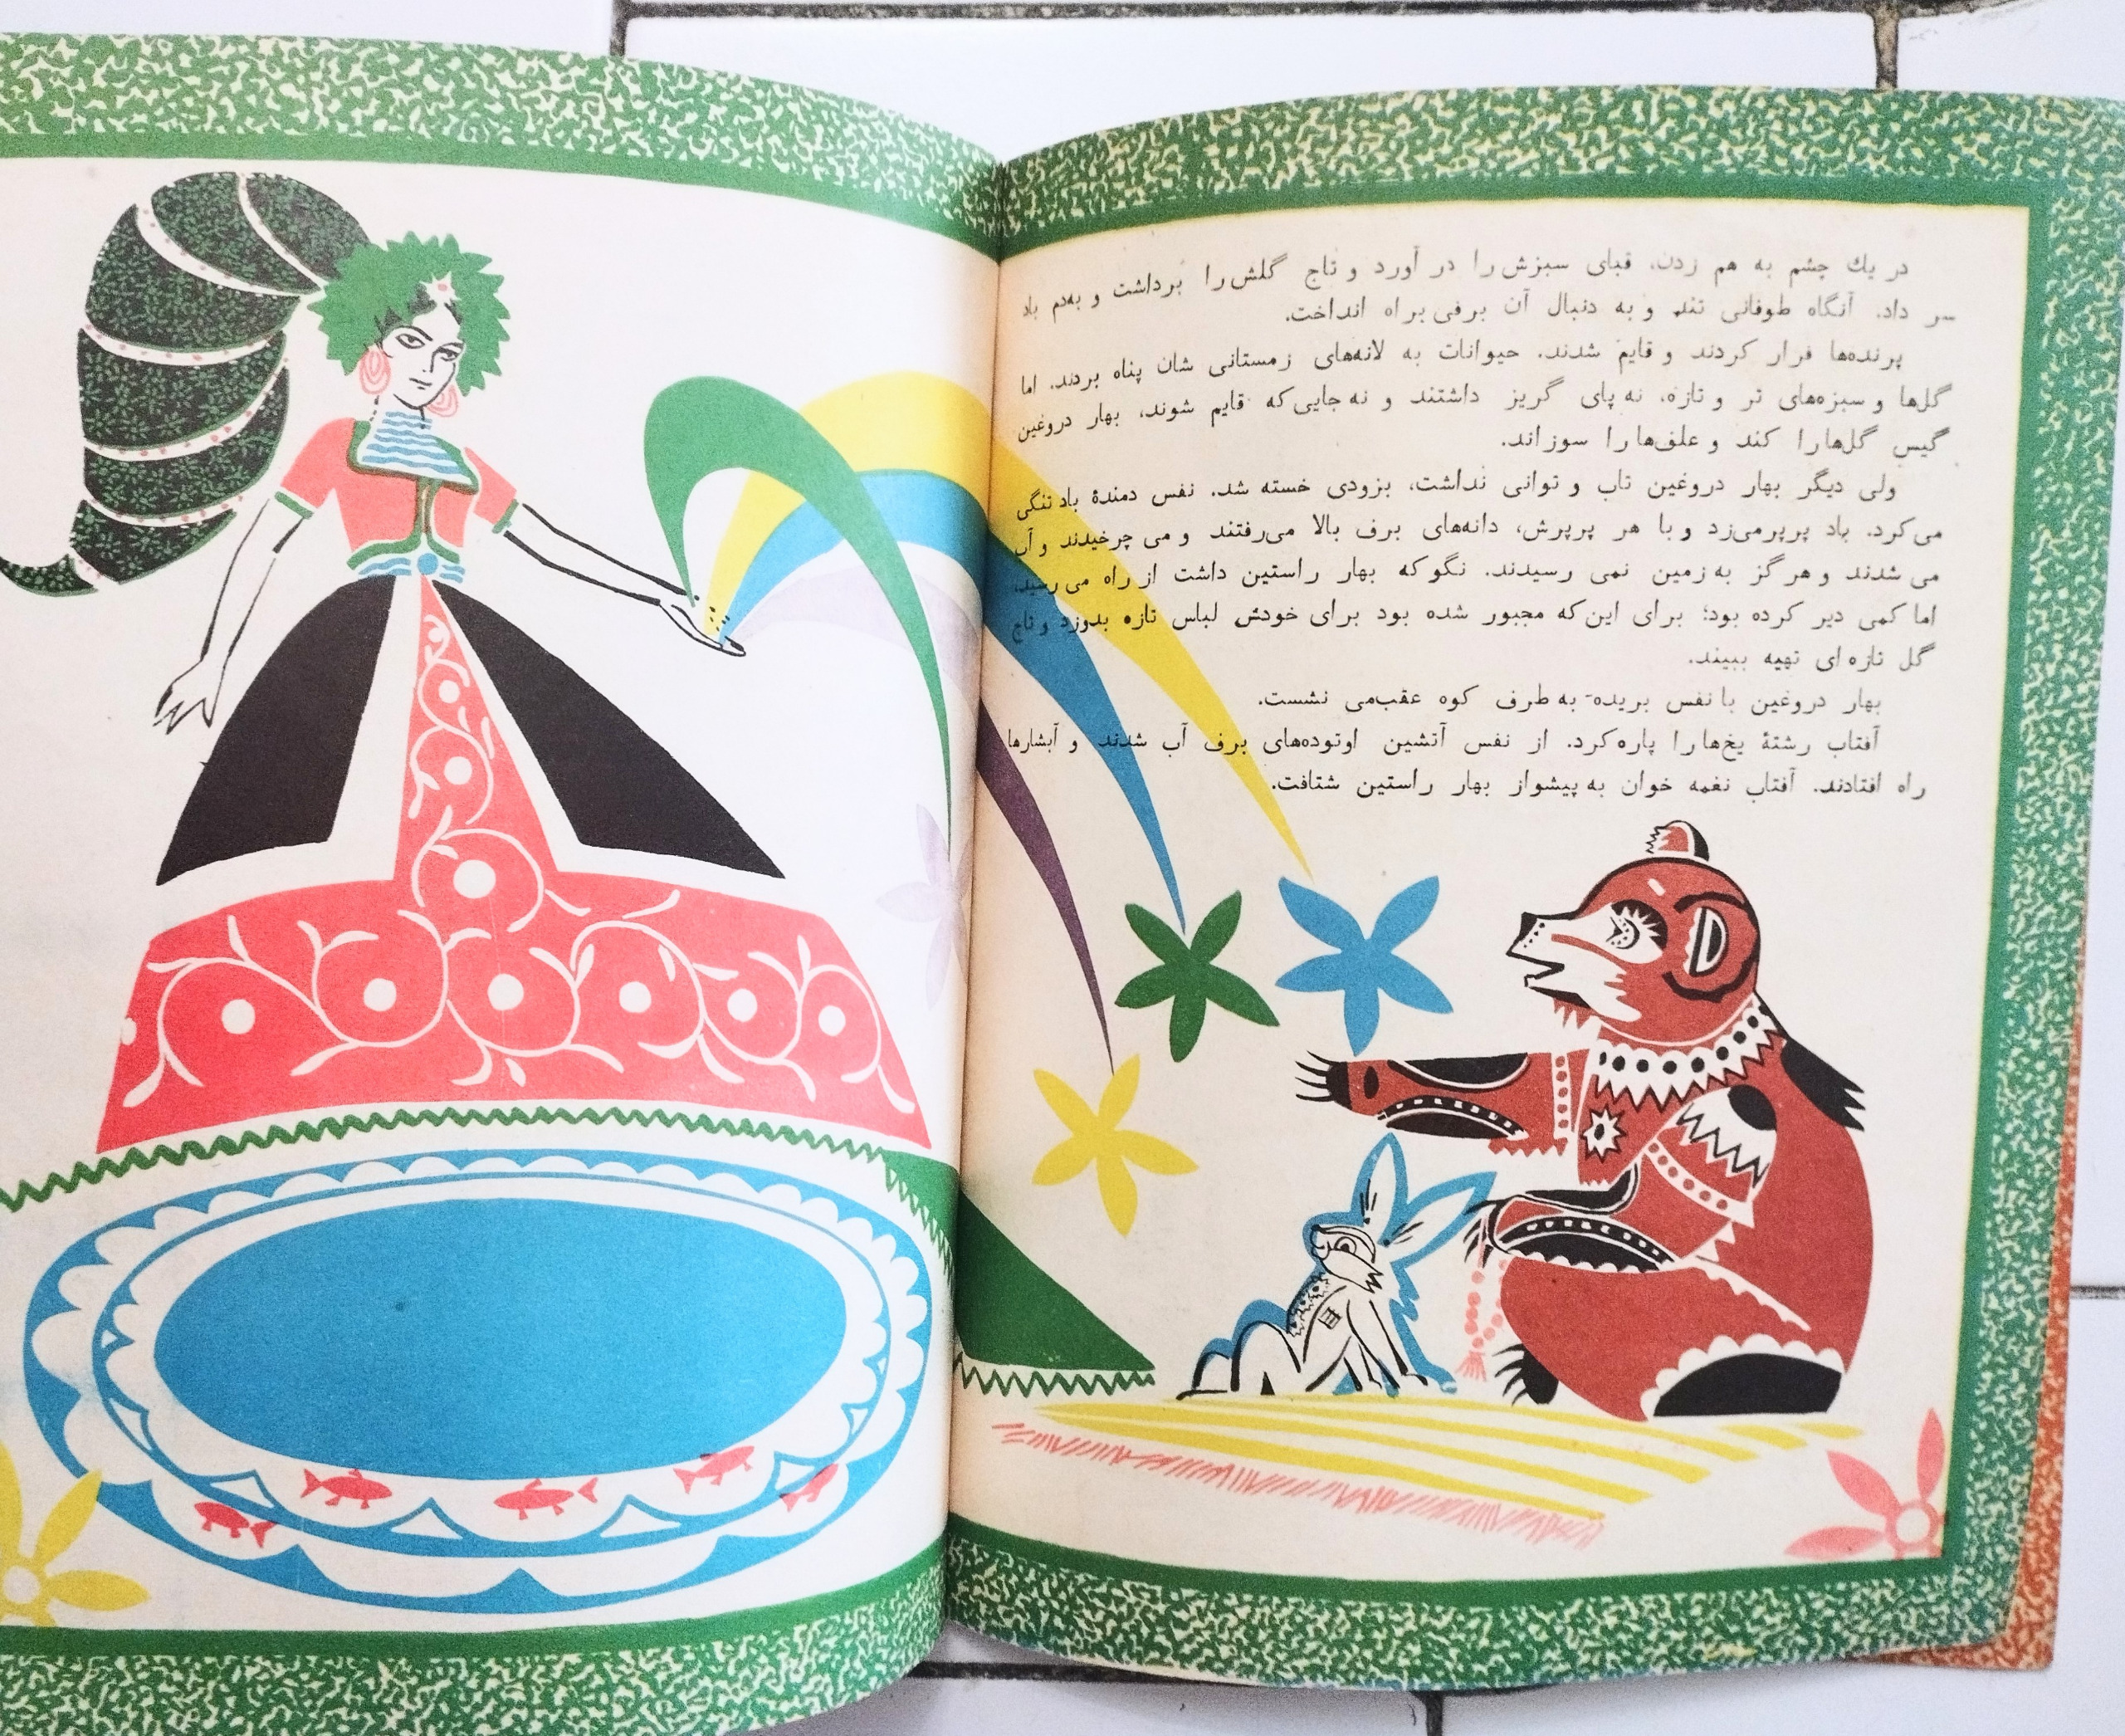 در یك چشم به هم زدن، قبای سبزش را در آورد و تاج گلش را برداشت و به‌دم باد
سر داد. آنگاه طوفانی تند و به دنبال آن برفی براه انداخت.
پرنده‌ها فرار کردند و قایم شدند. حیوانات به لانه‌های زمستانی شان پناه بردند. اما
گل‌ها و سبزه‌های تر و تازه، نه پای گریز داشتند و نه جایی که قایم شوند، بهار دروغین
گیس گل‌ها را کند و علف‌ها را سوزاند.
ولی دیگر بهار دروغین تاب و توانی نداشت، بزودی خسته شد. نفس دمندهٔ باد تنگی
می‌کرد. باد پرپر می‌زد و با هر پرپرش، دانه‌های برف بالا می‌رفتند و می چرخیدند و آب
می شدند و هرگز به زمین نمی رسیدند. نگو که بهار راستین داشت از راه می رسید،
اما کمی دیر کرده بود؛ برای این که مجبور شده بود برای خودش لباس تازه بدوزد و تاج
گل تازه ای تهیه ببیند.
بهار دروغین با نفس بریده- به طرف کوه عقب‌می نشست.
آفتاب رشتهٔ یخ‌ها را پاره کرد. از نفس آتشین او توده‌های برف آب شدند و آبشارها
راه افتادند. آفتاب نغمه خوان به پیشواز بهار راستین شتافت.